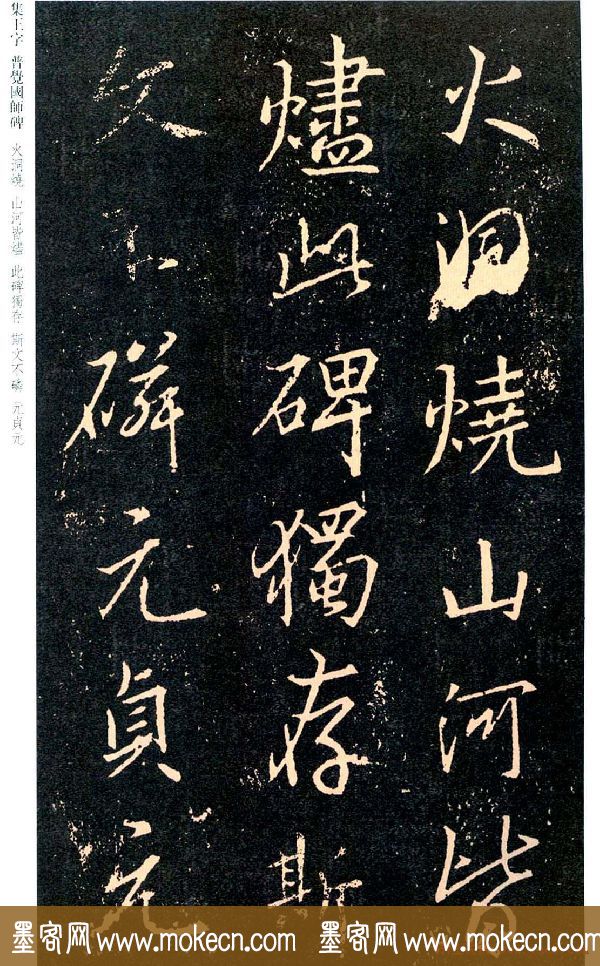 火洞燒山河皆
燼此碑獨存斯
文不磷元貞元
集王字 普覺國師碑 火洞燒 山河皆燼 此碑獨存 斯文不磷 元貞元
墨客网 www.mokecn.com 墨客网 www.mokecn.com